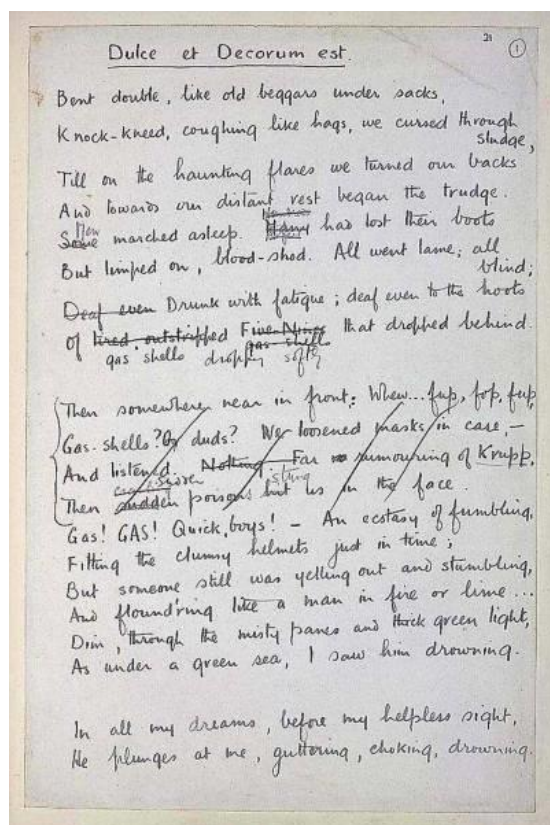 21
1
Dulce et Decorum est.
Bent double, like old beggars under sacks,
Knock-kneed, coughing like hags, we cursed through
sludge,
Till on the haunting flares we turned our backs
And towards our distant rest began the trudge.
Men
Some marched asleep. Many had lost their boots
But limped on, blood-shod. All went lame; all
blind;
Deaf even Drunk with fatigue; deaf even to the hoots
Of tired, outstripped Five-Nines that dropped behind.
gas shells dropping softly gas-shells
Then somewhere near in front: Whew... fup, fop, fup,
Gas-shells? Or duds? We loosened masks in case, —
And listened. Nothing. Far rumouring of Krupp,
stung
Then sudden poisons hit us in the face.
Gas! GAS! Quick, boys! — An ecstasy of fumbling,
Fitting the clumsy helmets just in time;
But someone still was yelling out and stumbling,
And flound'ring like a man in fire or lime...
Dim, through the misty panes and thick green light,
As under a green sea, I saw him drowning.
In all my dreams, before my helpless sight,
He plunges at me, guttering, choking, drowning.